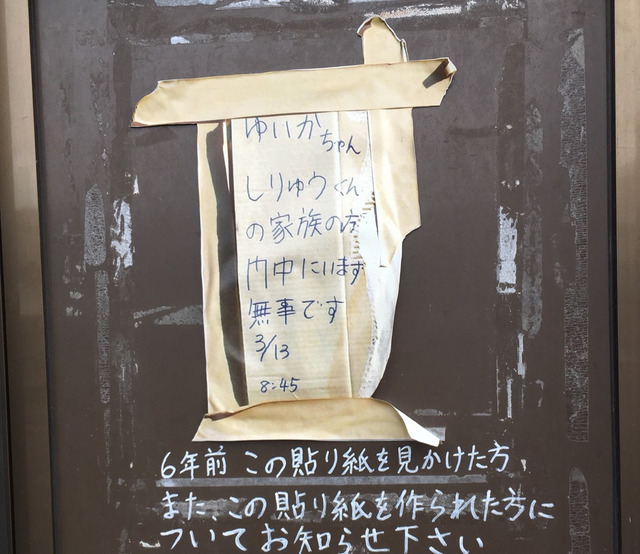 ゆいかちゃん
しりゅうくん
の家族の方
門中にいます
無事です
3/13
8:45
6年前 この貼り紙を見かけた方
また、この貼り紙を作られた方に
ついてお知らせ下さい